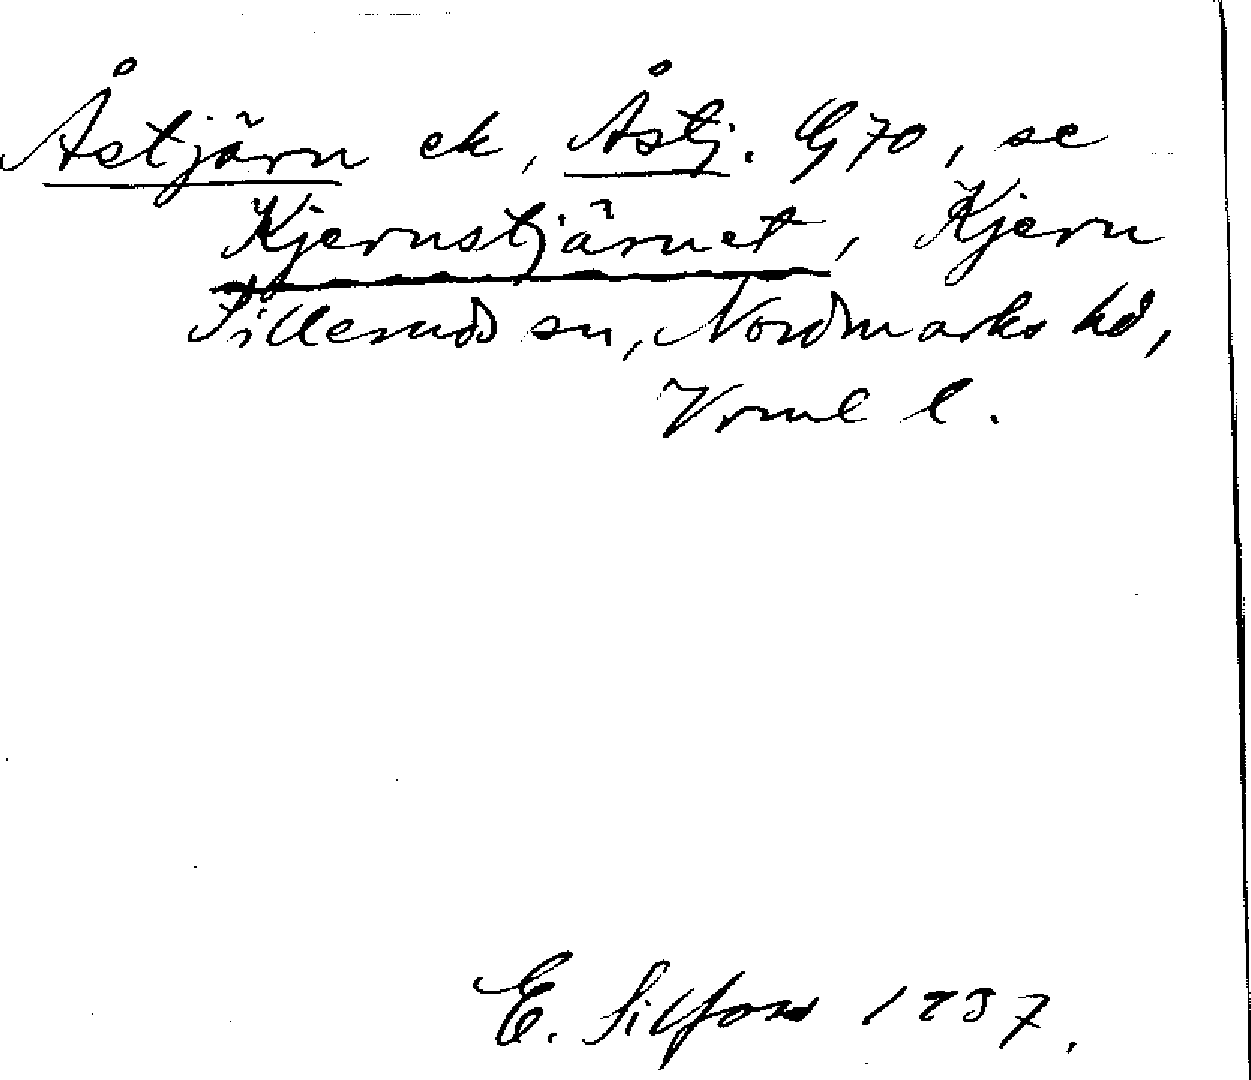 Åstjärn ek, Åstj. G70, se
Kjernstjärnet, Kjern
Sillerud sn, Nordmarks hd,
Vrml l.
E. 1937.